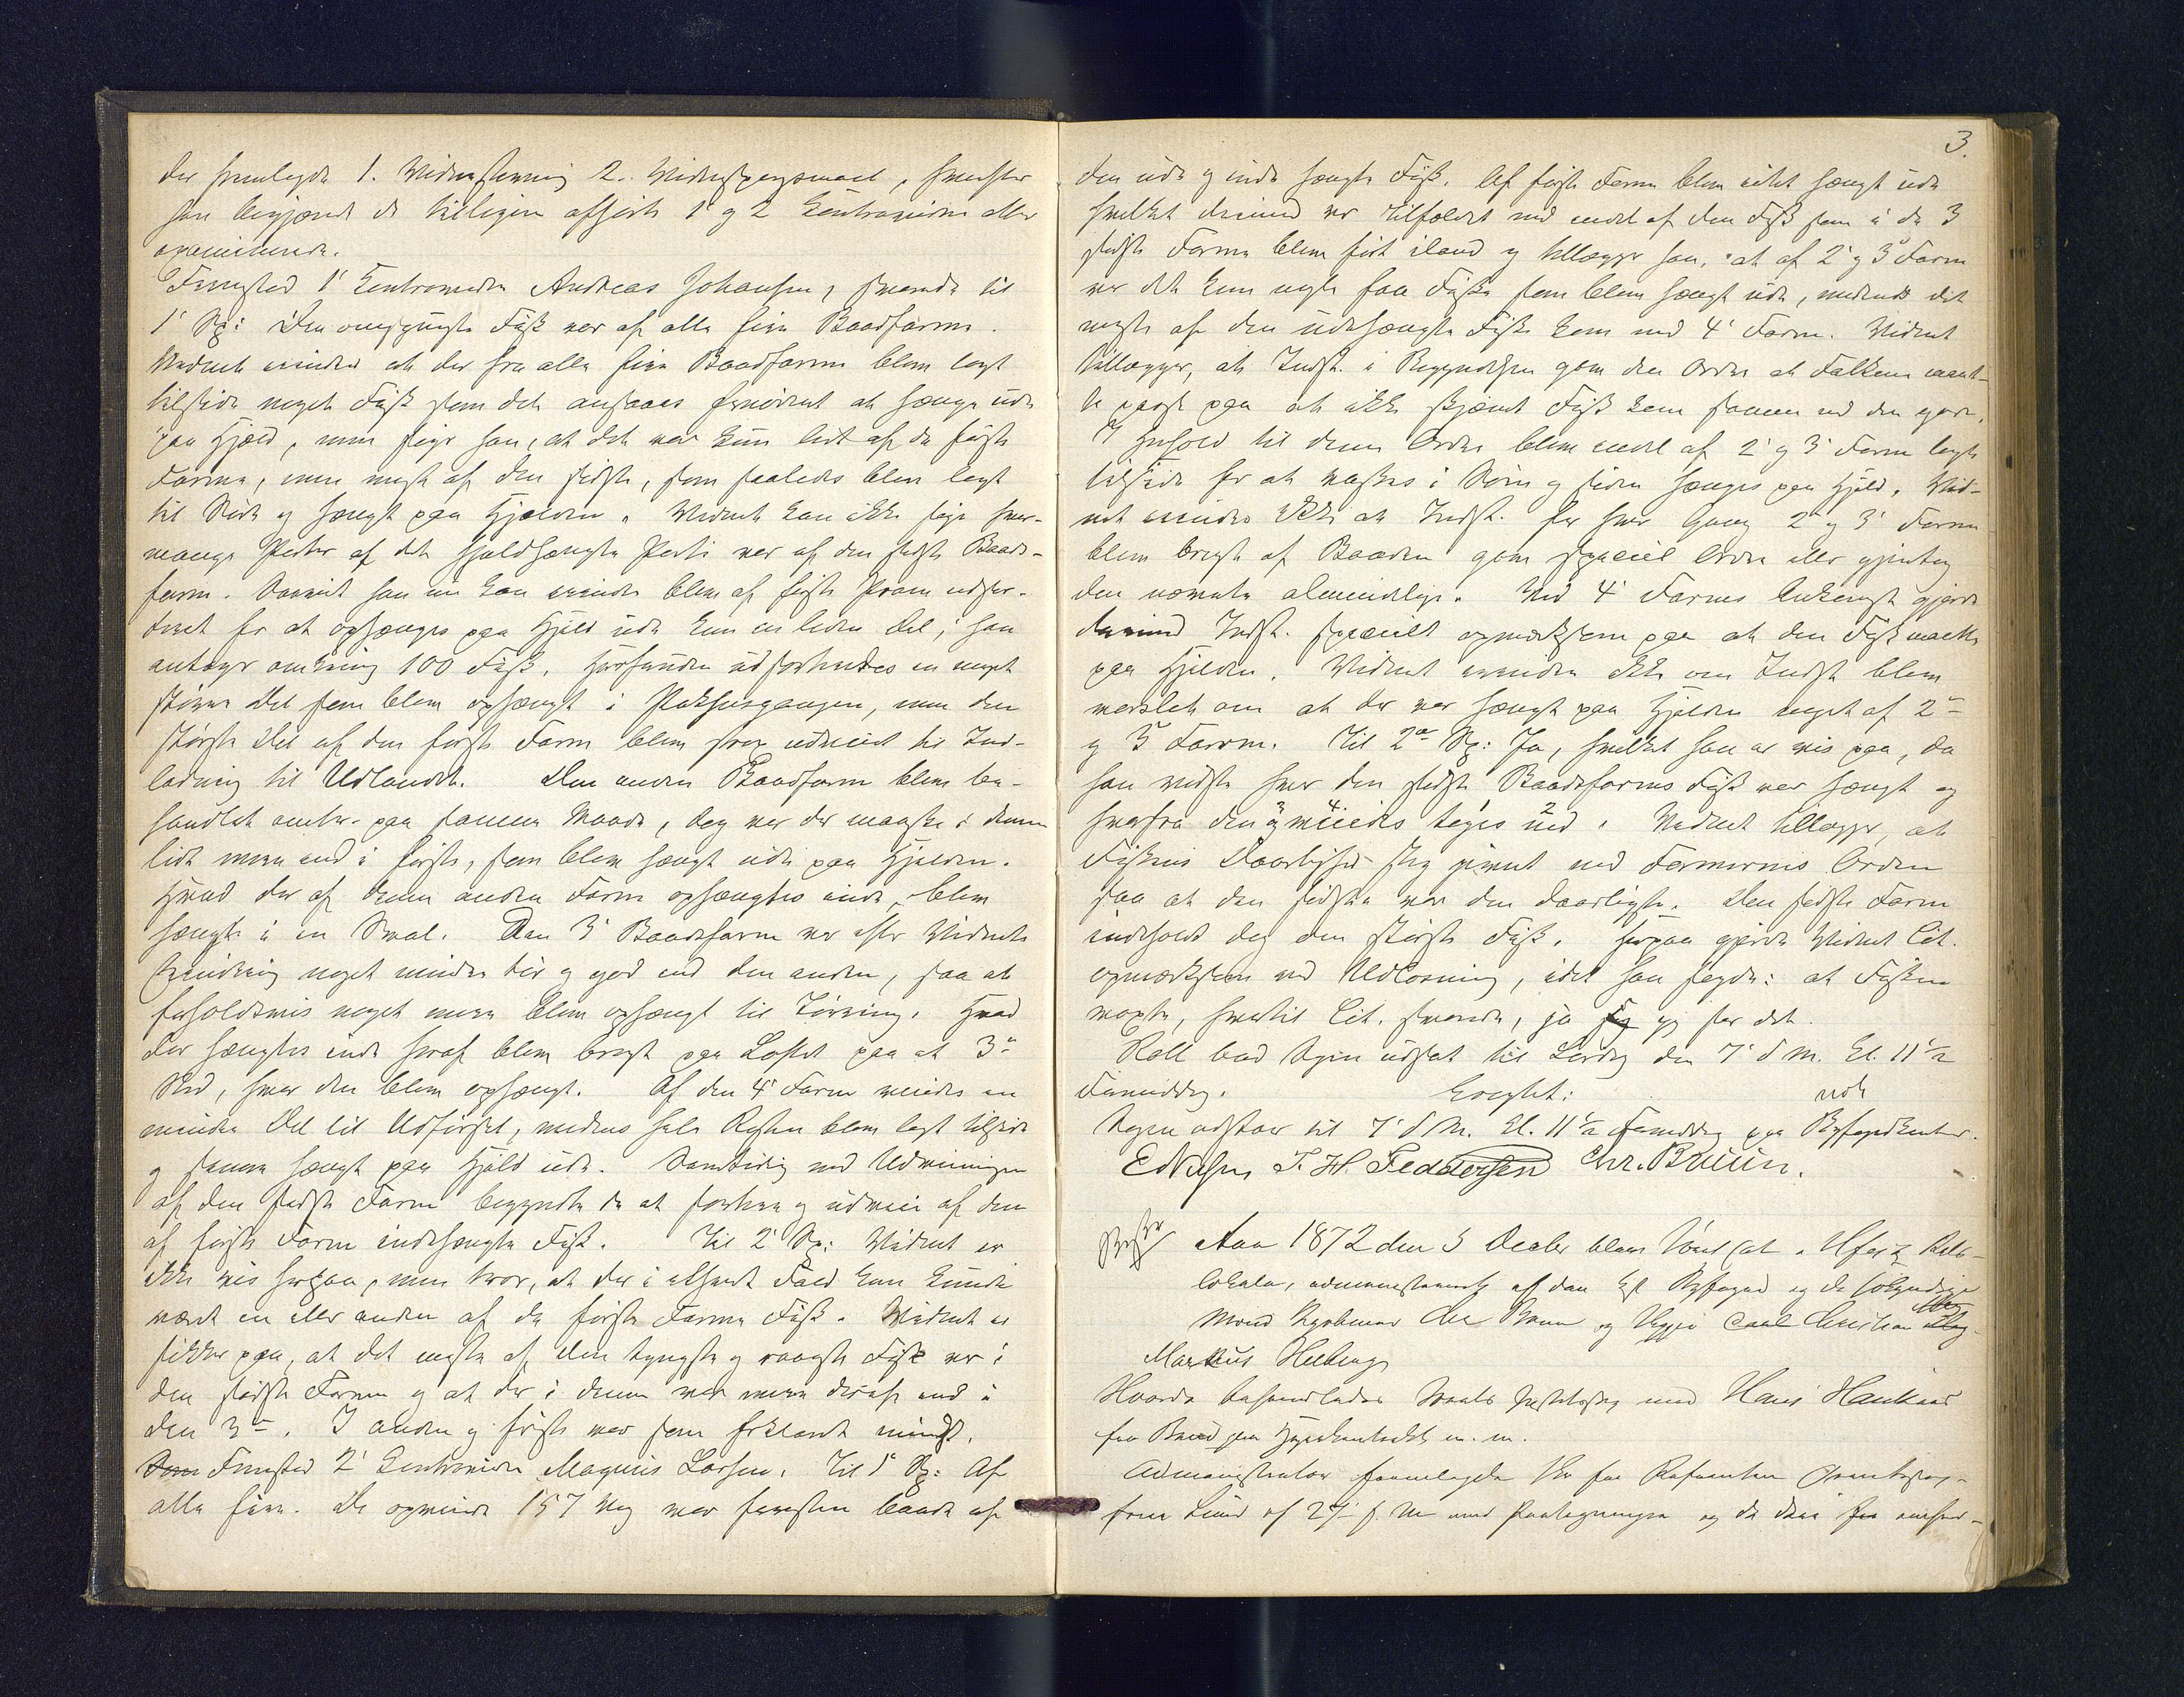 der fremlagde 1. Vidnestevning 2. Vidnespørgsmaal, hvorefter
han begjærede de tidligere afhørte 1' og 2' Contravidner atter
examinerede.
Fremstod 1' Contravidne Andreas Johansen, svarede til
1' Sp: Den omspurgte Fisk var af alle fire Baadfarme.
Vidnet minder at der fra alle fire Baadfarme blev lagt
tilside noget Fisk som det ansaaes fornødent at hænge ude
paa Hjeld, men siger han, at det var kun lidt af de første
Farme, men mest af den sidste, som saaledes blev lagt
til Side og hængt paa Hjelden. Vidnet kan ikke sige hvor-
mange Voger af det hjeldhængte Parti var af den sidste Baad-
farm. Saavidt han nu kan minde blev af første Farm udsor-
teret for at ophænges paa Hjeld ude kun en liden Del, han
antager omkring 100 Fisk. Herforuden udsorteredes en meget
større Del som blev ophængt i Pakhusgangen, men den
største Del af den første Farm blev strax udveiet til Ind-
ladning til Udlandet. Den anden Baadfarm blev be-
handlet omtr. paa samme Maade, dog var der maaske i denne
lidt mere end i første, som blev hængt ude paa Hjelden.
Hvad der af denne anden Farm ophængtes inde, blev
hængt i en Sval. Den 3' Baadsfarm var efter Vidnets
Erindring noget mindre tør og god end den anden, saa at
forholdsvis noget mere blev ophængt til Tørring. Hvad
der hængtes inde heraf blev bragt paa Loftet paa et 3die
Sted, hvor den blev ophængt. Af den 4' Farm veiedes en
mindre Del til Udførsel, medens hele Resten blev lagt tilside
og senere hængt paa Hjeld ude. Samtidig med Udveiningen
af den sidste Farm begyndte de at sortere og udveie af den
af første Farm indehængte Fisk. Til 2' Sp: Vidnet er
ikke vis herpaa, men tror, at der i altfald kun kunde
været en eller anden af de første Farme Fisk. Vidnet er
sikker paa, at det meste af den tyngste og raaeste Fisk var i
den sidste Farm og at der i denne var mere deraf end i
den 3die. I anden og første var som forklaret mindst.
Fremstod 2' Contravidne Magnus Larsen. Til 1' Sp: Af
alle fire. De opveiede 157 Vog var foresten baade af
3.
den ude og inde hængte Fisk. Af første Farm blev intet hængt ude
hvilket derimod var Tilfældet med endel af den Fisk som i de 3
sidste Farme blev ført iland og tillægger han, at af 2' og 3' Farm
var det kun nogle faa Fiske som blev hængt ude, medens det
meste af den udehængte Fisk kom med 4' Farm. Vidnet
tillægger, at Indst. i Begyndelsen gav den Ordre at Folkene maat-
te passe paa at ikke skjæmt Fisk kom sammen med den gode.
I Henhold til denne Ordre blev endel af 2' og 3' Farm lagt
tilside for at vaskes i Søen og siden hænges paa Hjeld. Vid-
net minder ikke at Indst. for hver Gang 2' og 3' Farm
blev bragt af Baaden gav speciel Ordre eller gjentog
den nævnte almindelige. Ved 4' Farms Ankomst gjorde
derimod Indst. specielt opmærksom paa at den Fisk maatte
paa Hjelden. Vidnet minder ikke om Indst. blev
varslet om at der var hængt paa Hjelden noget af 2den
og 3' Farm. Til 2det Sp: Ja, hvilket han er vis paa, da
han vidste hvor den sidste Baadsfarms Fisk var hængt og
hvorfra den og veiedes toges ned. Vidnet tillægger, at
Fiskens Daarlighed steg jevnt med Farmernes Orden
saa at den sidste var den daarligste. Den sidste Farm
indeholdt dog den største Fisk. Herpaa gjorde Vidnet Cit.
opmærksom ved Udlosning, idet han sagde: at Fisken
voxte, hvortil Cit. svarede, ja jeg ser det.
Koll bad Sagen udsat til Lørdag den 7' d M. Kl. 11 1/2
Formiddag. Eragtet:
Sagen udstaar til 7' d M. Kl. 11 1/2 Formiddag paa Byfogedkontor.
T. H. Feddersen Chr. Bruun.
Aar 1872 den 5 Decbr blev Court sat
lokale, administreret af den kst Byfoged og de søkyndige
Mænd Kjøbmand Chr Bruun og Carl Christian
Markus Helberg
Hvorda behandledes med Hans Hanksen
fra m. m.
Administrator fremlagde